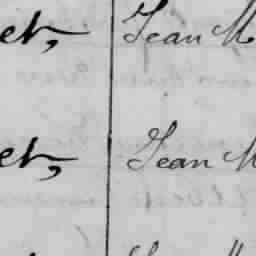 et, Jean M
et, Jean M